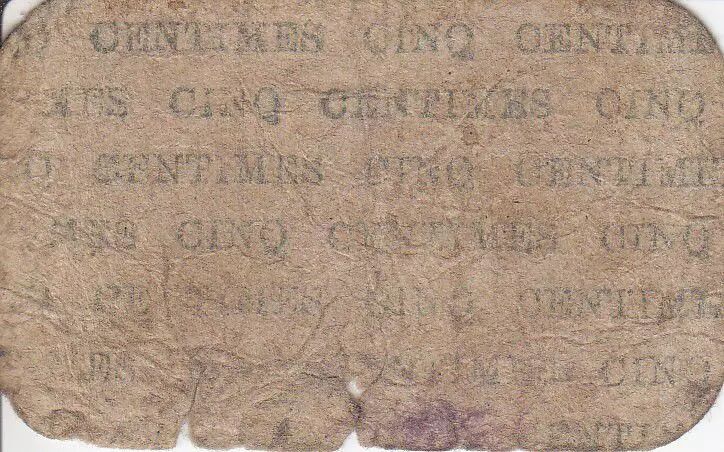 CENTIMES CINQ CENTIME
MES CINQ CENTIMES CINQ
CENTIMES CINQ CENTIME
MES CINQ CENTIMES CINQ
CENTIMES CINQ CENTIME
ES CENTIMES CINQ
ENTIM